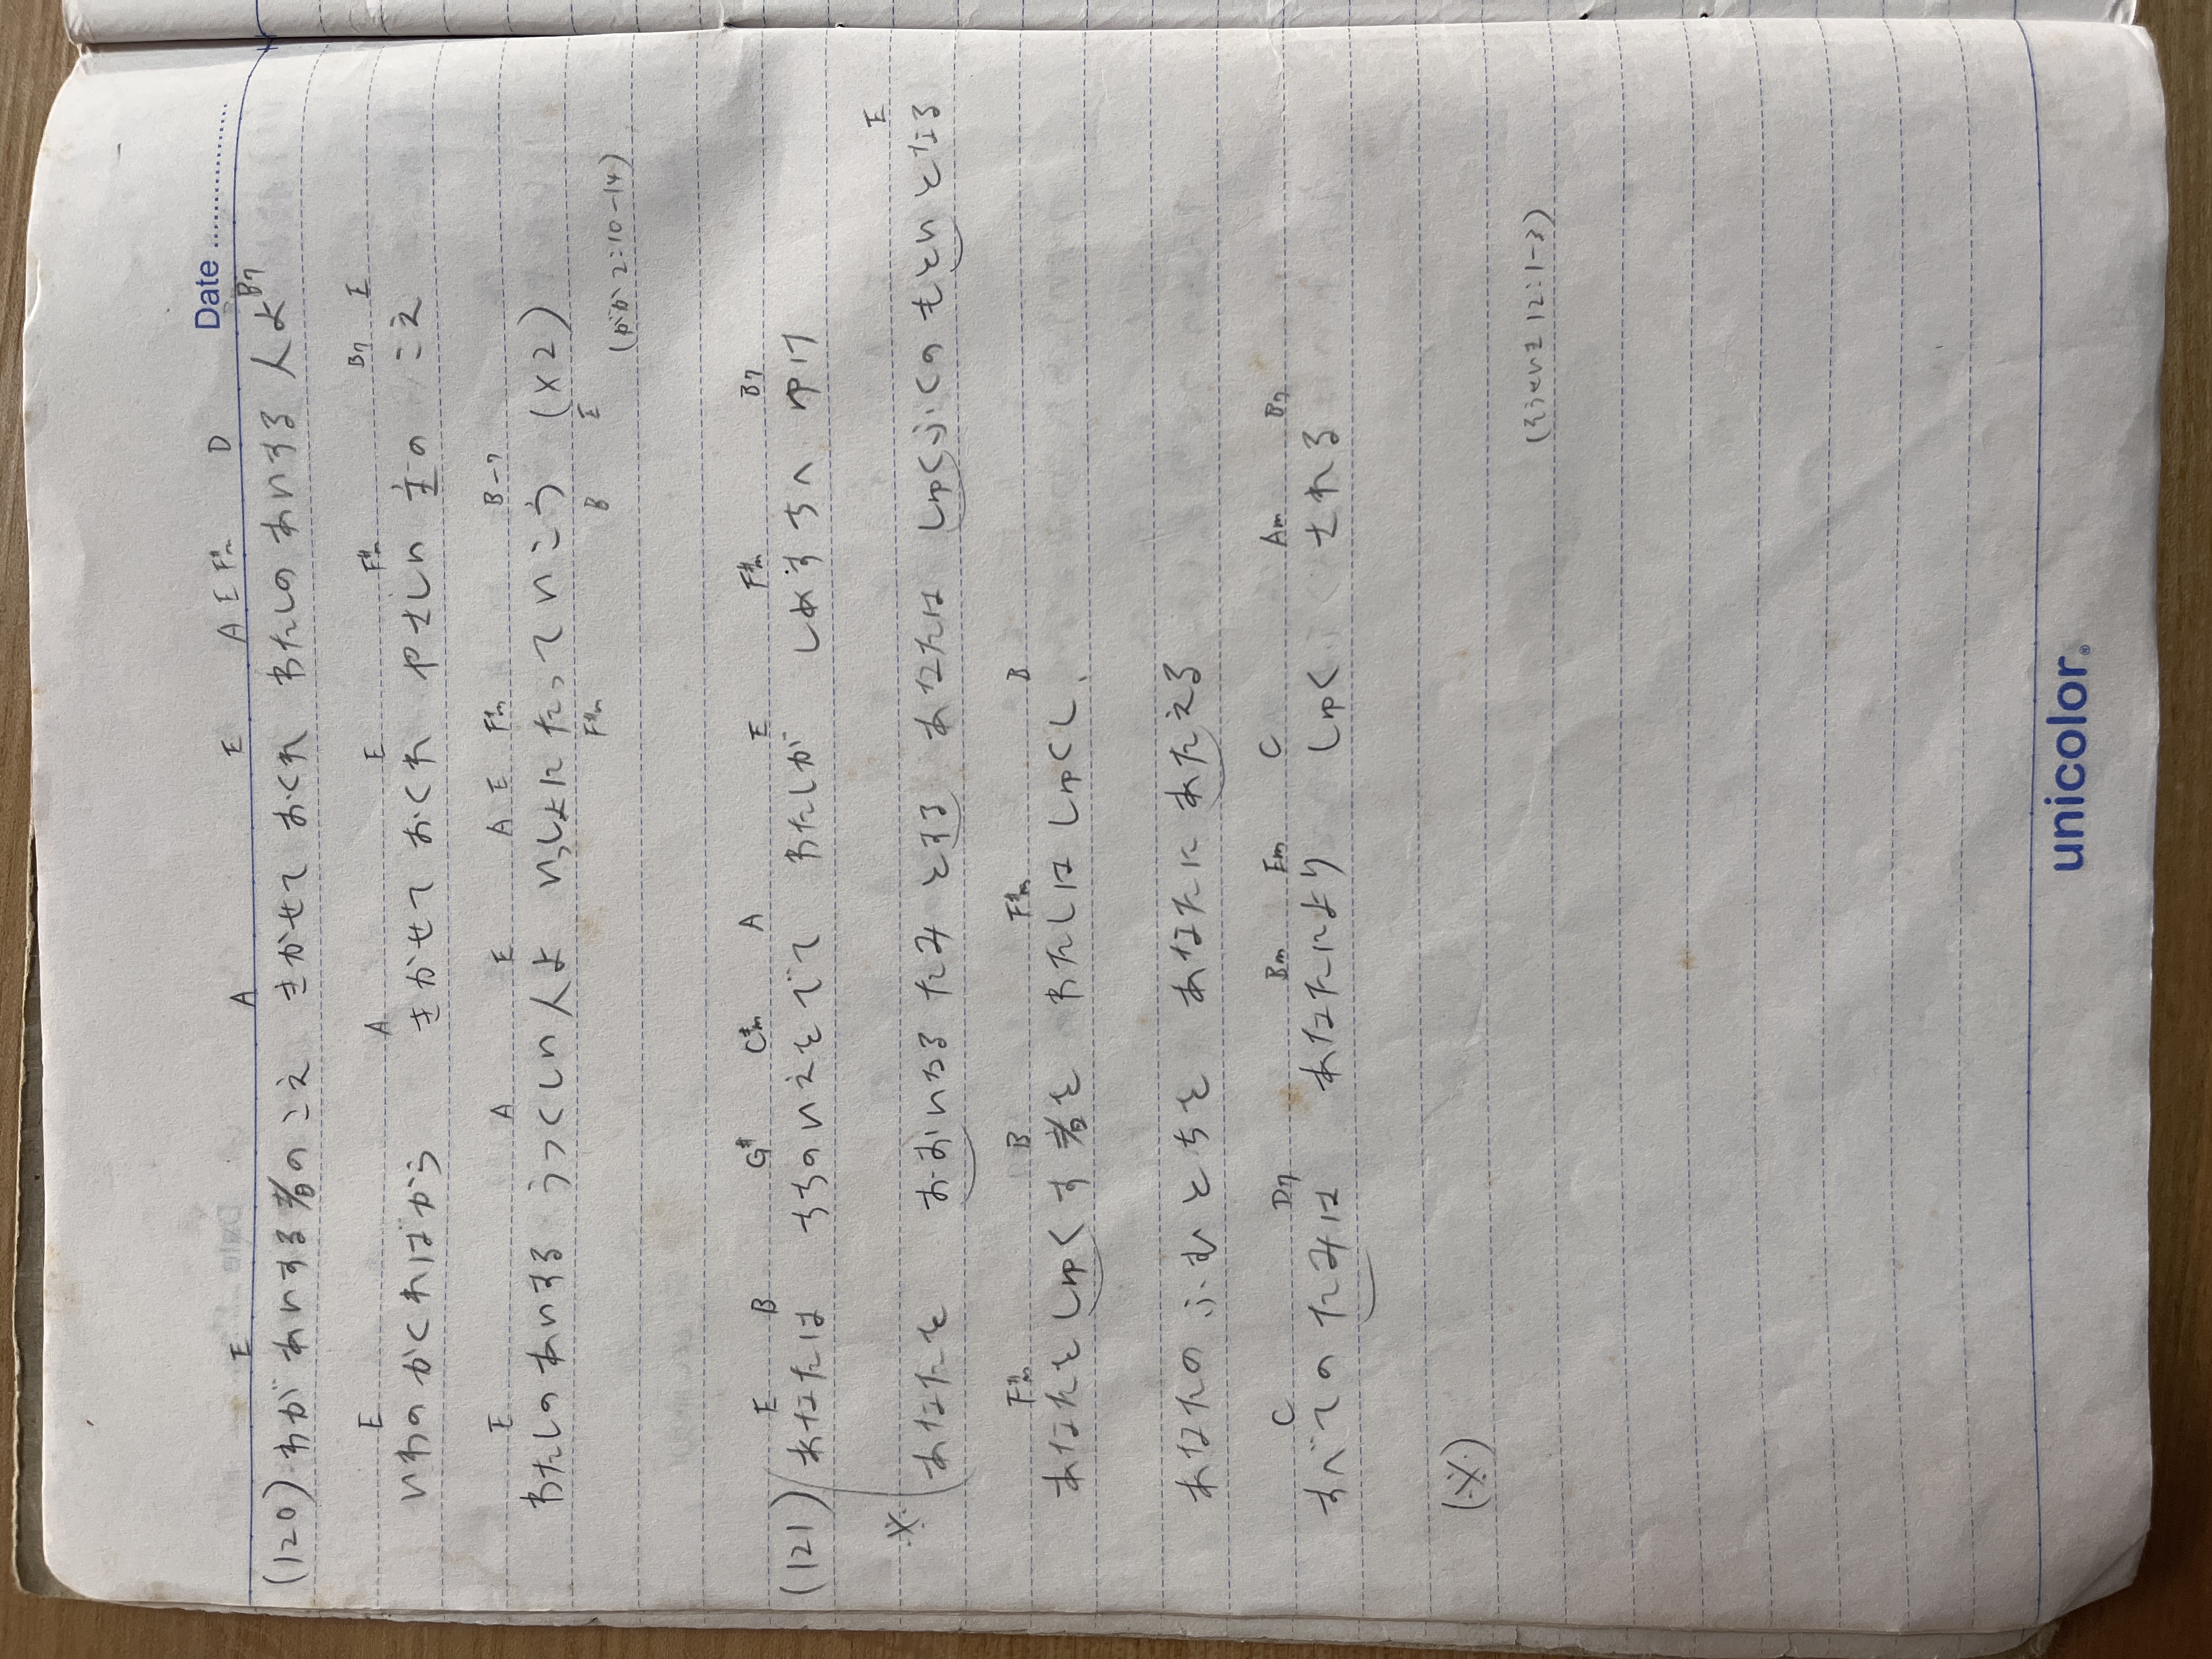 Date
E A E A E F#m D B7
(120) わが あいする者のこえ きかせて おくれ わたしの あいする 人よ
E A E F#m B7 E
いわのかくればから きかせて おくれ やさしい 主の こえ
E A E A E F#m B-7
わたしのあいする うつくしい 人よ いっしょに たって いこう (×2)
F#m B E
(がか 2:10-14)
E B G# C#m A E F#m B7
(121) あなたは ちちのいえをでて わたしが しめすちへ ゆけ
E
※ あなたを おおいなる たみ とする あなたは しゅくふくの もといとなる
F#m B F#m B
あなたを しゅくす 者を わたしは しゅくし、
あなたの ふむ とちを あなたに あたえる
C D7 Bm Em C Am B7
すべての たみは あなたにより しゅくふく される
(※)
(そうせいき 12:1-3)
unicolor®